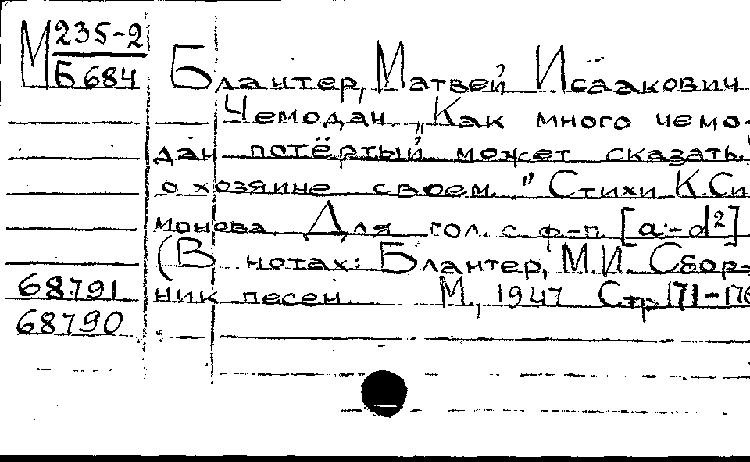 М 235-2
Б 684
Блантер, Матвей Исаакович
Чемодан. „Как много чемо-
дан потёртый может сказать
о хозяине своем." Стихи К. Си-
монова. Для гол. с ф-п. [a:-d²]
(В нотах: Блантер, М.И. Сбор-
ник песен М., 1947 Стр. 171-176
68791
68790